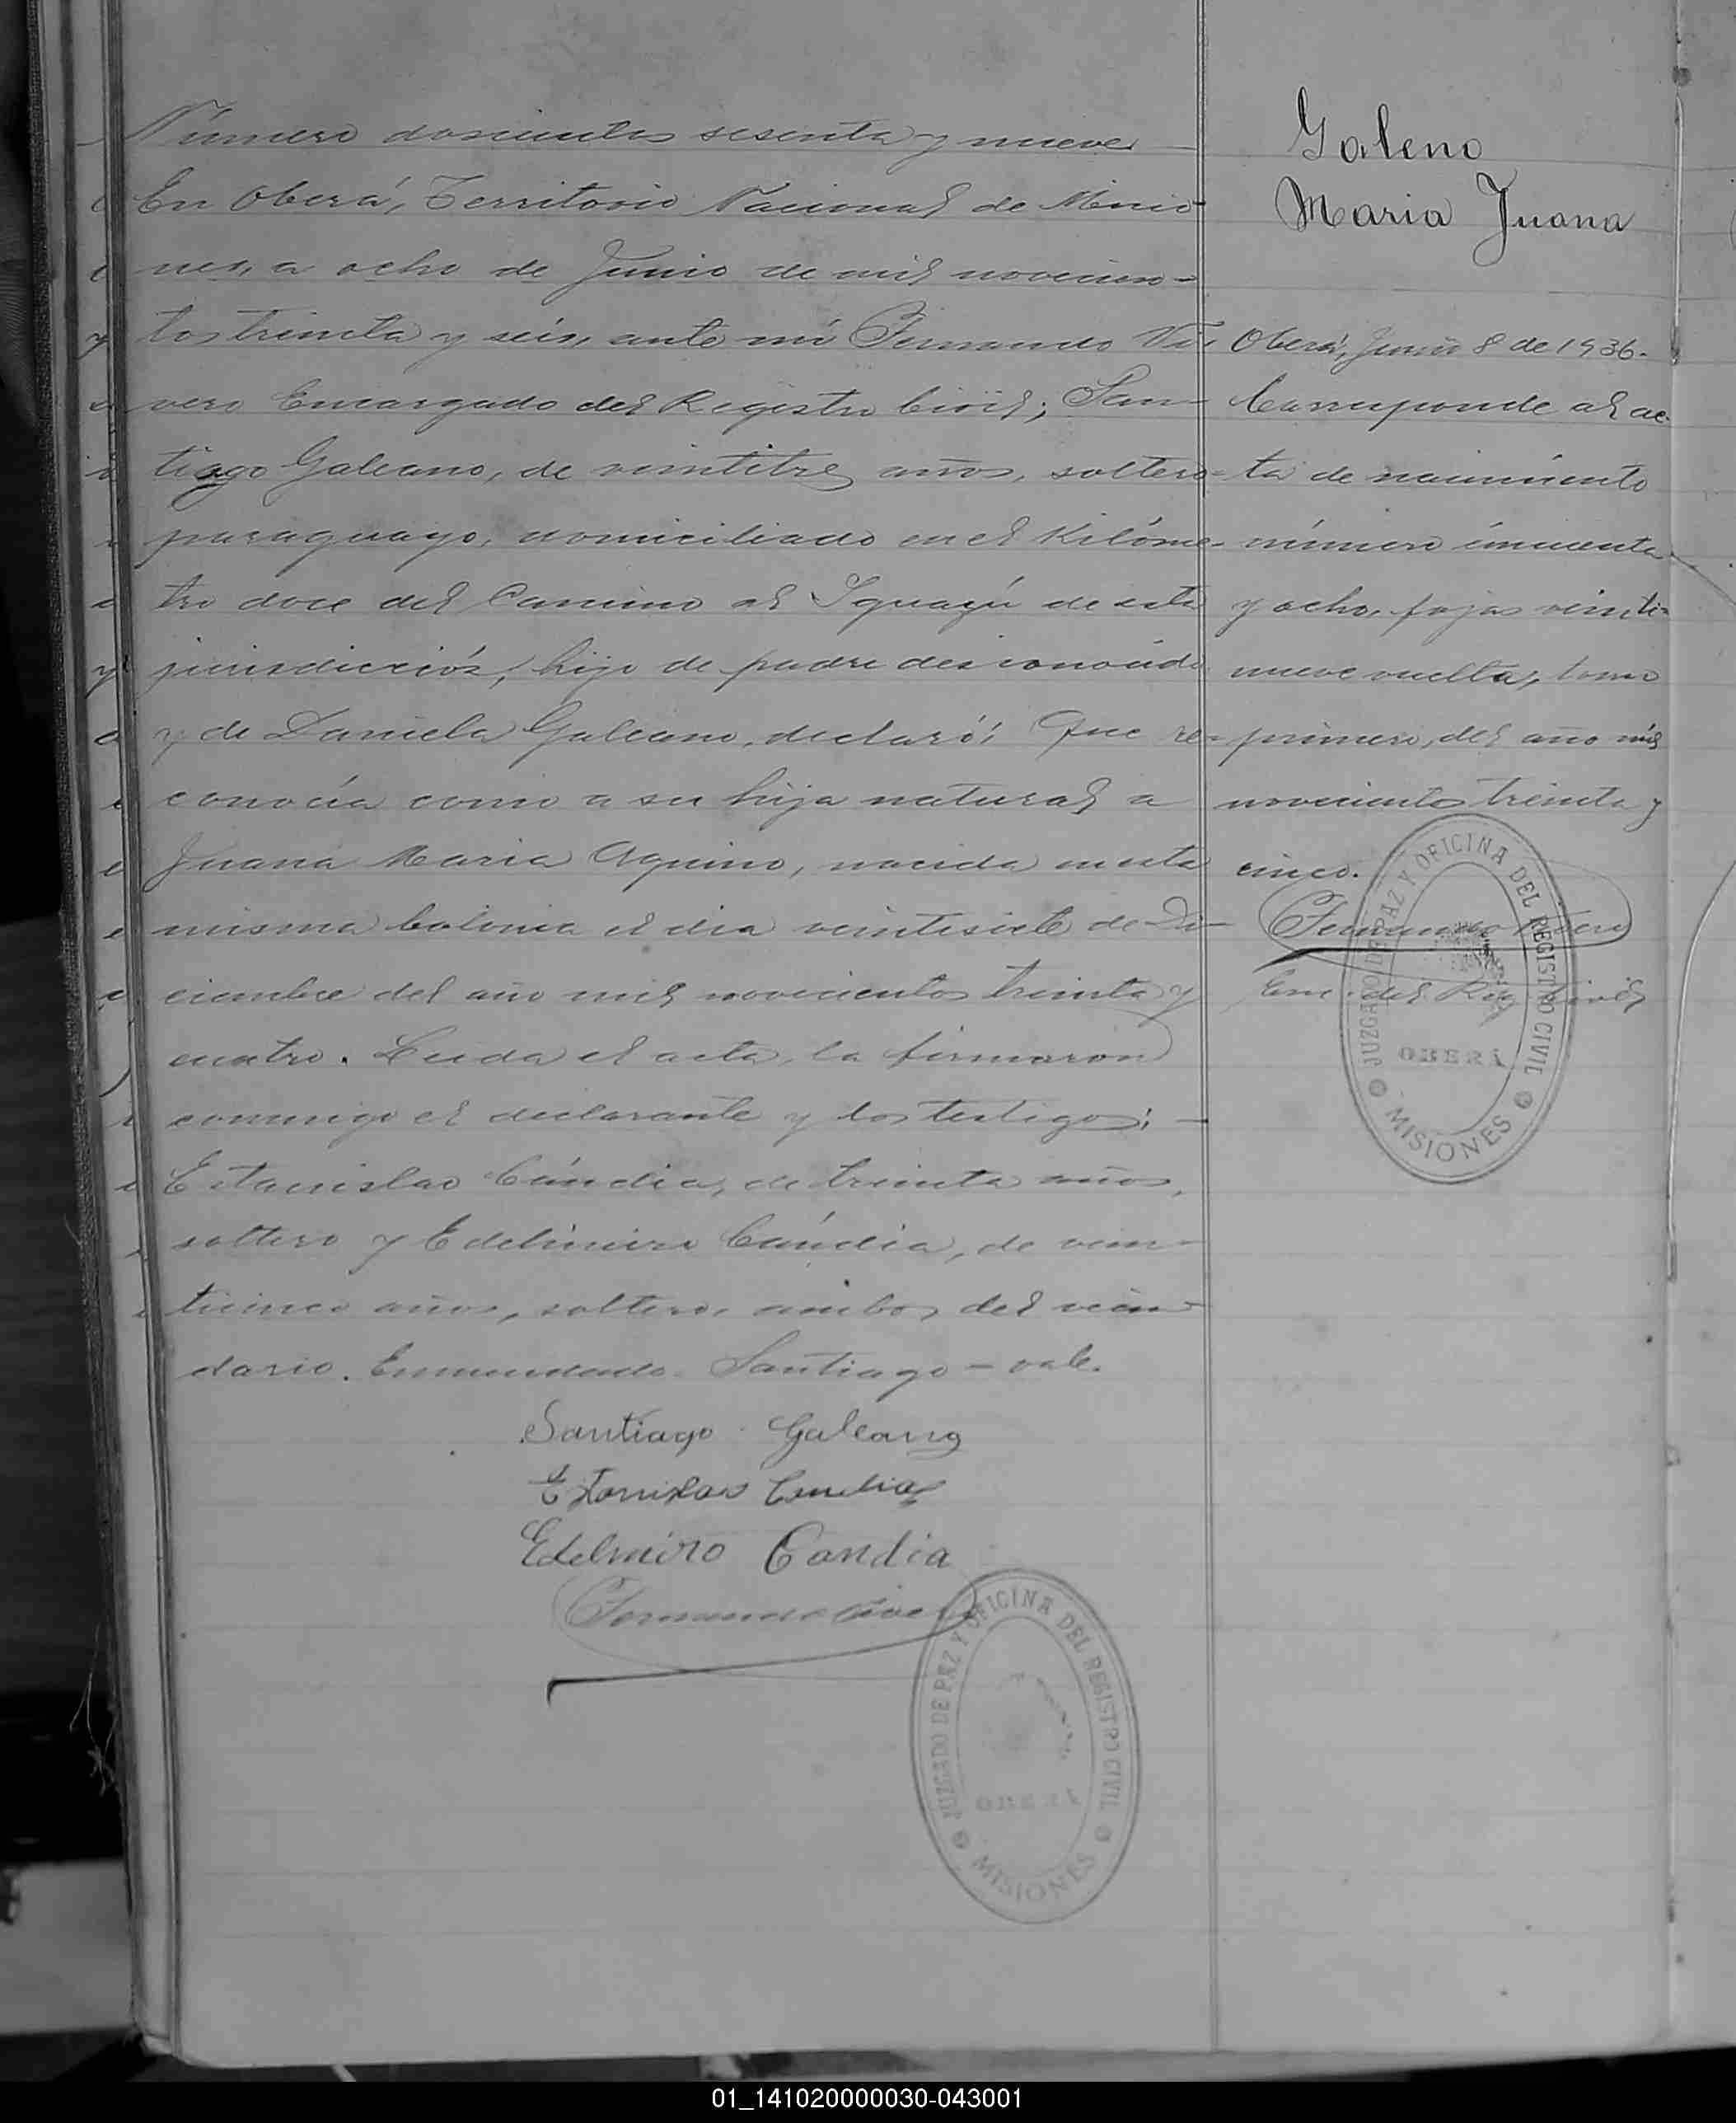 Número doscientos sesenta y nueve
En Oberá, Territorio Nacional de Misio-
nes, a ocho de Junio de mil novecien-
tos treinta y seis, ante mí Fernando Vi-
vero Encargado del Registro Civil; San-
tiago Galeano, de veintitres años, soltero
paraguayo, domiciliado en el Kilóme-
tro doce del Camino al Yguazú de esta
jurisdicción, hijo de padre desconocido
y de Daniela Galeano, declaró: Que re-
conocía como a su hija natural a
Juana Maria Aquino, nacida en esta
misma Colonia el dia veintisiete de Di-
ciembre del año mil novecientos treinta y
cuatro. Leida el acta, la firmaron
conmigo el declarante y los testigos:
Estanislao Cándia, de treinta años,
soltero y Edelmiro Cándia, de vein-
ticinco años, soltero, ambos del vecin-
dario. Enmendado Santiago - vale.
Santiago Galeano
Estanislao Candia
Edelmiro Candia
Fernando Vivero
JUZGADO DE PAZ Y OFICINA DEL REGISTRO CIVIL
OBERÁ
MISIONES
Galeno
Maria Juana
Oberá, Junio 8 de 1936.
Corresponde al ac-
ta de nacimiento
número cincuenta
y ocho, fojas veinti-
nueve vuelta, tomo
primero, del año mil
novecientos treinta y
cinco.
Fernando Vivero
Enc. del Reg. Civil
JUZGADO DE PAZ Y OFICINA DEL REGISTRO CIVIL
OBERÁ
MISIONES
01_141020000030-043001